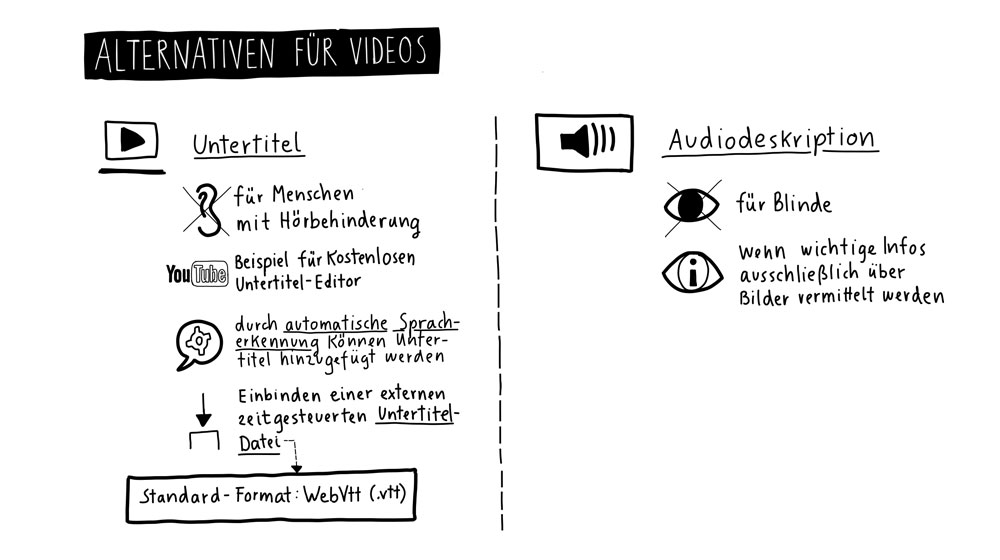 ALTERNATIVEN FÜR VIDEOS
Untertitel
für Menschen
mit Hörbehinderung
YouTube
Beispiel für Kostenlosen
Untertitel-Editor
durch automatische Sprach-
erkennung können Unter-
titel hinzugefügt werden
Einbinden einer externen
zeitgesteuerten Untertitel-
Datei
Standard-Format: WebVtt (.vtt)
Audiodeskription
für Blinde
i
Wenn wichtige Infos
ausschließlich über
Bilder vermittelt werden